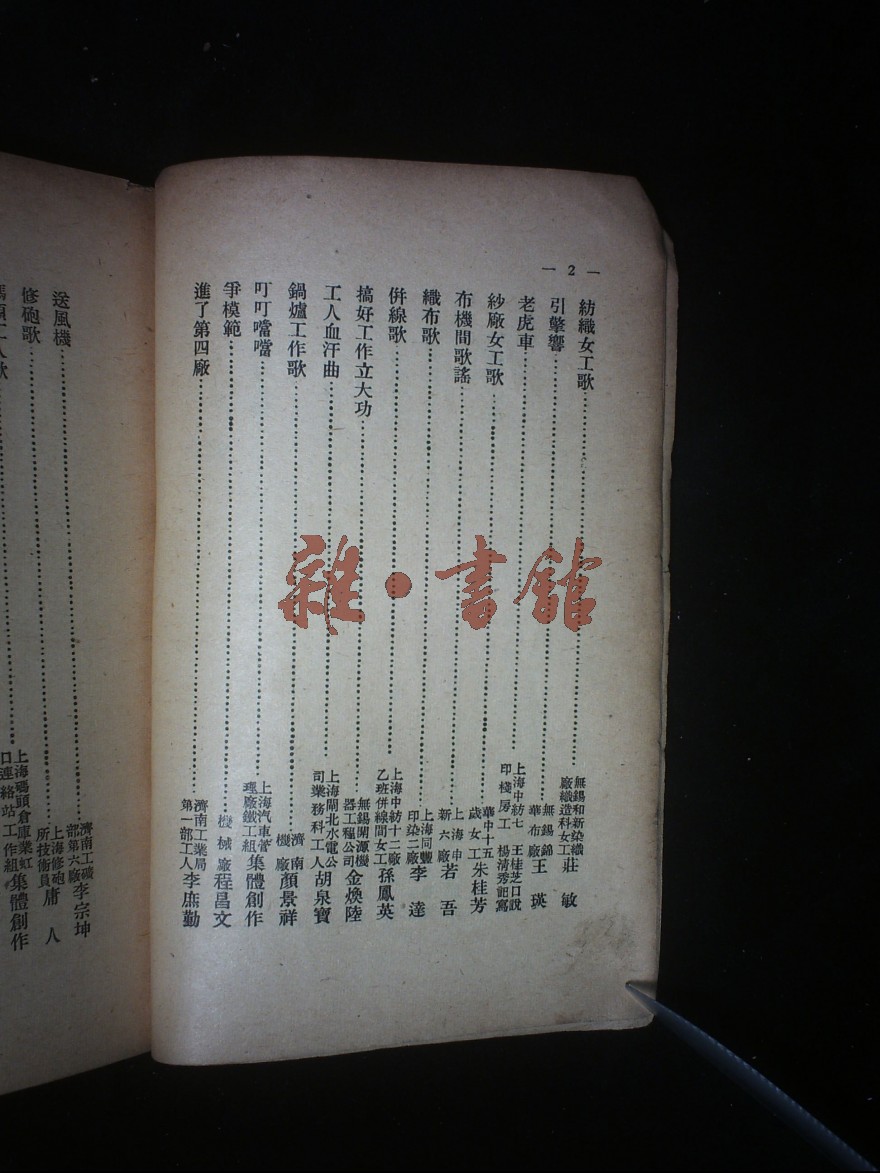 — 2 —
紡織女工歌……無錫和新染織廠織造科女工 莊敏
引擎響……無錫錦華布廠 王瑛
老虎車……上海中紡七印棧房工 王桂芝口說 楊清秀記寫
紗廠女工歌……華中十五歲女工 朱桂芳
布機間歌謠……上海中新六廠 若吾
織布歌……上海同豐印染二廠 李達
併線歌……上海中紡十二廠乙班併線間女工 孫鳳英
搞好工作立大功……無錫開源機器工程公司 金煥陸
工人血汗曲……上海閘北水電公司業務科工人 胡泉寶
鍋爐工作歌……濟南機廠 顏景祥
叮叮噹噹……上海汽車管理廠鐵工組 集體創作
爭模範……機械廠 程昌文
進了第四廠……濟南工業局第一部工人 李庶勤
送風機……濟南工礦部第六廠 李宗坤
修砲歌……上海修砲所技術員 庸人
碼頭工人歌……上海碼頭倉庫業虹口連絡站工作組 集體創作
雜·書館